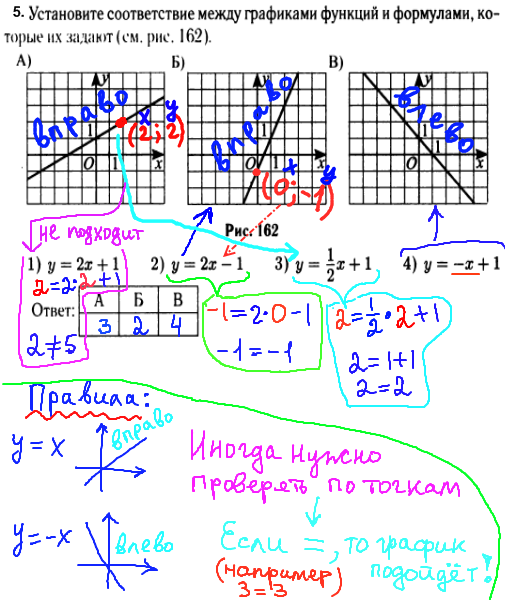 5. Установите соответствие между графиками функций и формулами, ко-
торые их задают (см. рис. 162).
А) Б) В)
y y y
вправо x y вправо влево
(2; 2)
1 1 1
x y
O 1 x O 1 x O 1 x
(0; -1)
не подходит Рис. 162
1) y = 2x + 1 2) y = 2x − 1 3) y = 1/2 x + 1 4) y = −x + 1
2=2·2+1
Ответ: А Б В
3 2 4
2≠5
-1=2·0-1
-1=-1
2=1/2·2+1
2=1+1
2=2
Правила:
y=x вправо
Иногда нужно
проверять по точкам
y=-x влево
Если =, то график
(например) подойдёт!
3=3